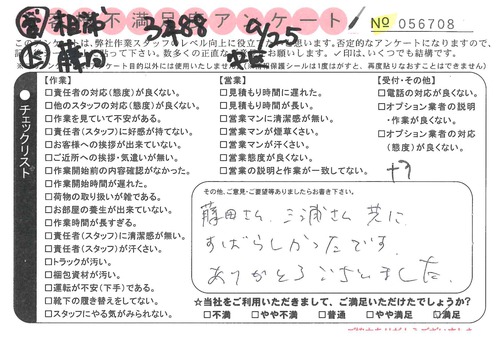 不満足アンケート
№ 056708
3488 9/25
このアンケートは、弊社作業スタッフのレベル向上に役立てたいと思います。否定的なアンケートになりますので、
【作業】
□責任者の対応(態度)が良くない。
□他のスタッフの対応(態度)が良くない。
□作業を見ていて不安がある。
□責任者(スタッフ)に好感が持てない。
□お客様への挨拶が出来ていない。
□ご近所への挨拶・気遣いが無い。
□作業開始前の内容確認がなかった。
□作業開始時間が遅れた。
□荷物の取り扱いが雑である。
□お部屋の養生が出来ていない。
□作業時間が長すぎる。
□責任者(スタッフ)に清潔感が無い。
□責任者(スタッフ)が汗くさい。
□トラックが汚い。
□梱包資材が汚い。
□運転が不安(下手)である。
□靴下の履き替えをしてない。
□スタッフにやる気がみられない。
【営業】
□見積もり時間に遅れた。
□見積もり時間が長い。
□営業マンに清潔感が無い。
□営業マンが煙草くさい。
□営業マンが汗くさい。
□営業態度が良くない。
□営業の説明と作業が一致してない。
【受付・その他】
□電話の対応が良くない。
□オプション業者の説明
・作業が良くない。
□オプション業者の対応
(態度)が良くない。
●チェックリスト
その他、ご意見・ご要望等ありましたらお書き下さい。
藤田さん、三浦さん 共に
すばらしかったです。
ありがとうございました。
☆当社をご利用いただきまして、ご満足いただけたでしょうか?
□不満 □やや不満 □普通 □やや満足 □満足